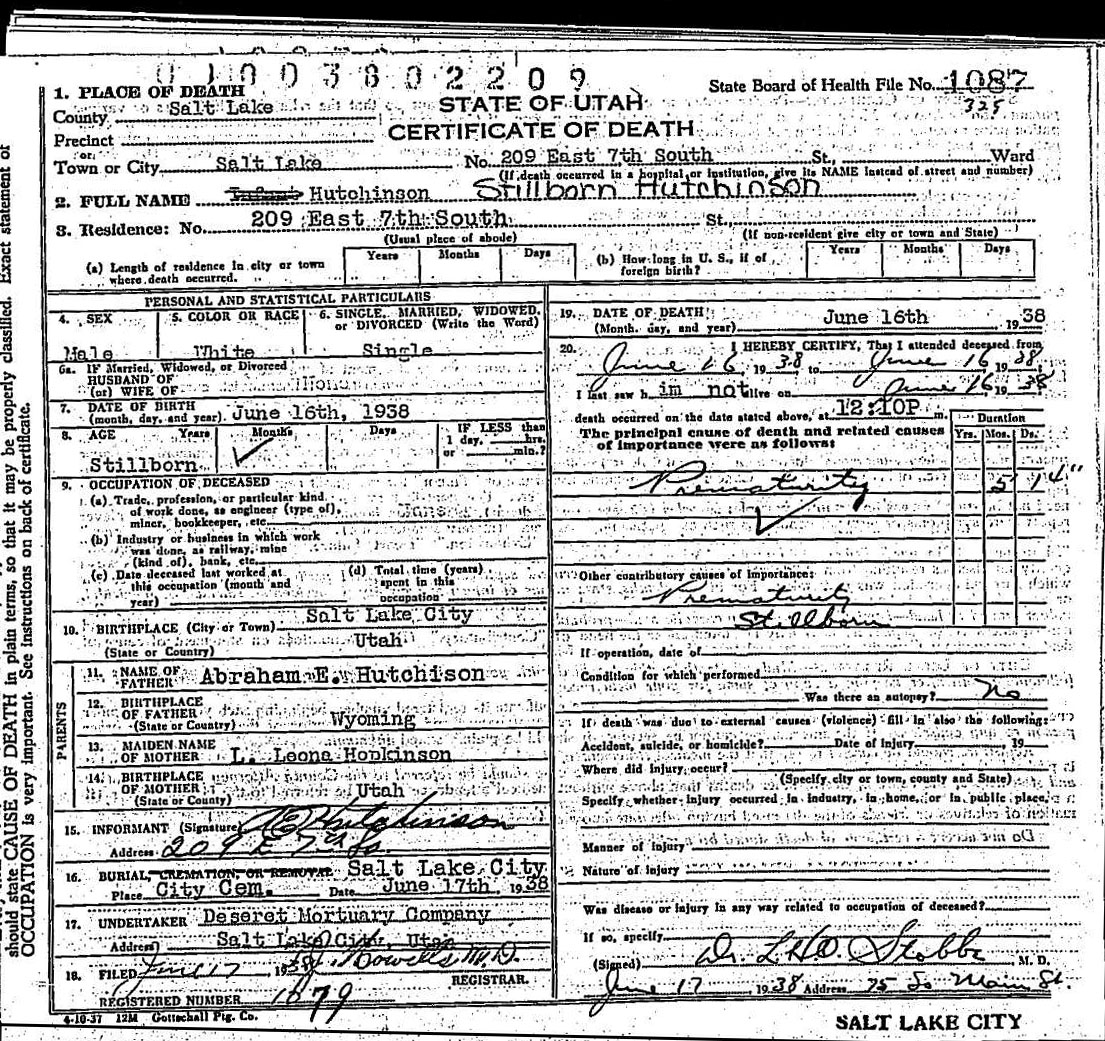 0 1 0 0 3 8 0 2 2 0 9
State Board of Health File No. 1087
325
1. PLACE OF DEATH
County Salt Lake
STATE OF UTAH
CERTIFICATE OF DEATH
Precinct
or
Town or City Salt Lake No. 209 East 7th South St., Ward
(If death occurred in a hospital or institution, give its NAME instead of street and number)
2. FULL NAME Hutchinson Stillborn Hutchinson
3. Residence: No. 209 East 7th South St.
(Usual place of abode) (If non-resident give city or town and State)
(a) Length of residence in city or town where death occurred. Years Months Days
(b) How long in U. S., if of foreign birth? Years Months Days
PERSONAL AND STATISTICAL PARTICULARS
4. SEX 5. COLOR OR RACE 6. SINGLE, MARRIED, WIDOWED, or DIVORCED (Write the Word)
Male White Single
6a. IF Married, Widowed, or Divorced
HUSBAND OF
(or) WIFE OF
7. DATE OF BIRTH
(month, day, and year) June 16th, 1938
8. AGE Years Months Days IF LESS than
1 day, hrs.
or min.?
Stillborn
9. OCCUPATION OF DECEASED
(a) Trade, profession, or particular kind
of work done, as engineer (type of),
miner, bookkeeper, etc.
(b) Industry or business in which work
was done, as railway, mine
(kind of), bank, etc.
(c) Date deceased last worked at
this occupation (month and
year)
(d) Total time (years)
spent in this
occupation
10. BIRTHPLACE (City or Town) Salt Lake City
(State or Country) Utah
PARENTS
11. NAME OF
FATHER Abraham E. Hutchison
12. BIRTHPLACE
OF FATHER
(State or Country) Wyoming
13. MAIDEN NAME
OF MOTHER L. Leona Hopkinson
14. BIRTHPLACE
OF MOTHER
(State or County) Utah
15. INFORMANT (Signature) A E Hutchinson
Address 209 E 7th So.
16. BURIAL, CREMATION, OR REMOVAL Salt Lake City
Place City Cem. Date June 17th, 1938
17. UNDERTAKER Deseret Mortuary Company
Address Salt Lake City, Utah
18. FILED June 17 1938 Howells M.D.
REGISTRAR.
REGISTERED NUMBER 1079
4-10-37 12M Gottschall Ptg. Co.
19. DATE OF DEATH:
(Month, day, and year) June 16th 1938
20. I HEREBY CERTIFY, That I attended deceased from
June 16, 1938, to June 16 1938,
I last saw h im not alive on June 16 1938
death occurred on the date stated above, at 12:10P m.
The principal cause of death and related causes
of importance were as follows:
Duration
Yrs. Mos. Ds.
Prematurity 5 14
Other contributory causes of importance:
Prematurity
Stillborn
If operation, date of
Condition for which performed
Was there an autopsy? No
If death was due to external causes (violence) fill in also the following:
Accident, suicide, or homicide? Date of injury 19
Where did injury occur?
(Specify city or town, county and State)
Specify whether injury occurred in industry, in home, or in public place.
Manner of injury
Nature of injury
Was disease or injury in any way related to occupation of deceased?
If so, specify
(Signed) Dr. L.H.O. Stobbe M. D.
June 17 1938 Address 75 So Main St.
SALT LAKE CITY
should state CAUSE OF DEATH in plain terms, so that it may be properly classified. Exact statement of
OCCUPATION is very important. See instructions on back of certificate.